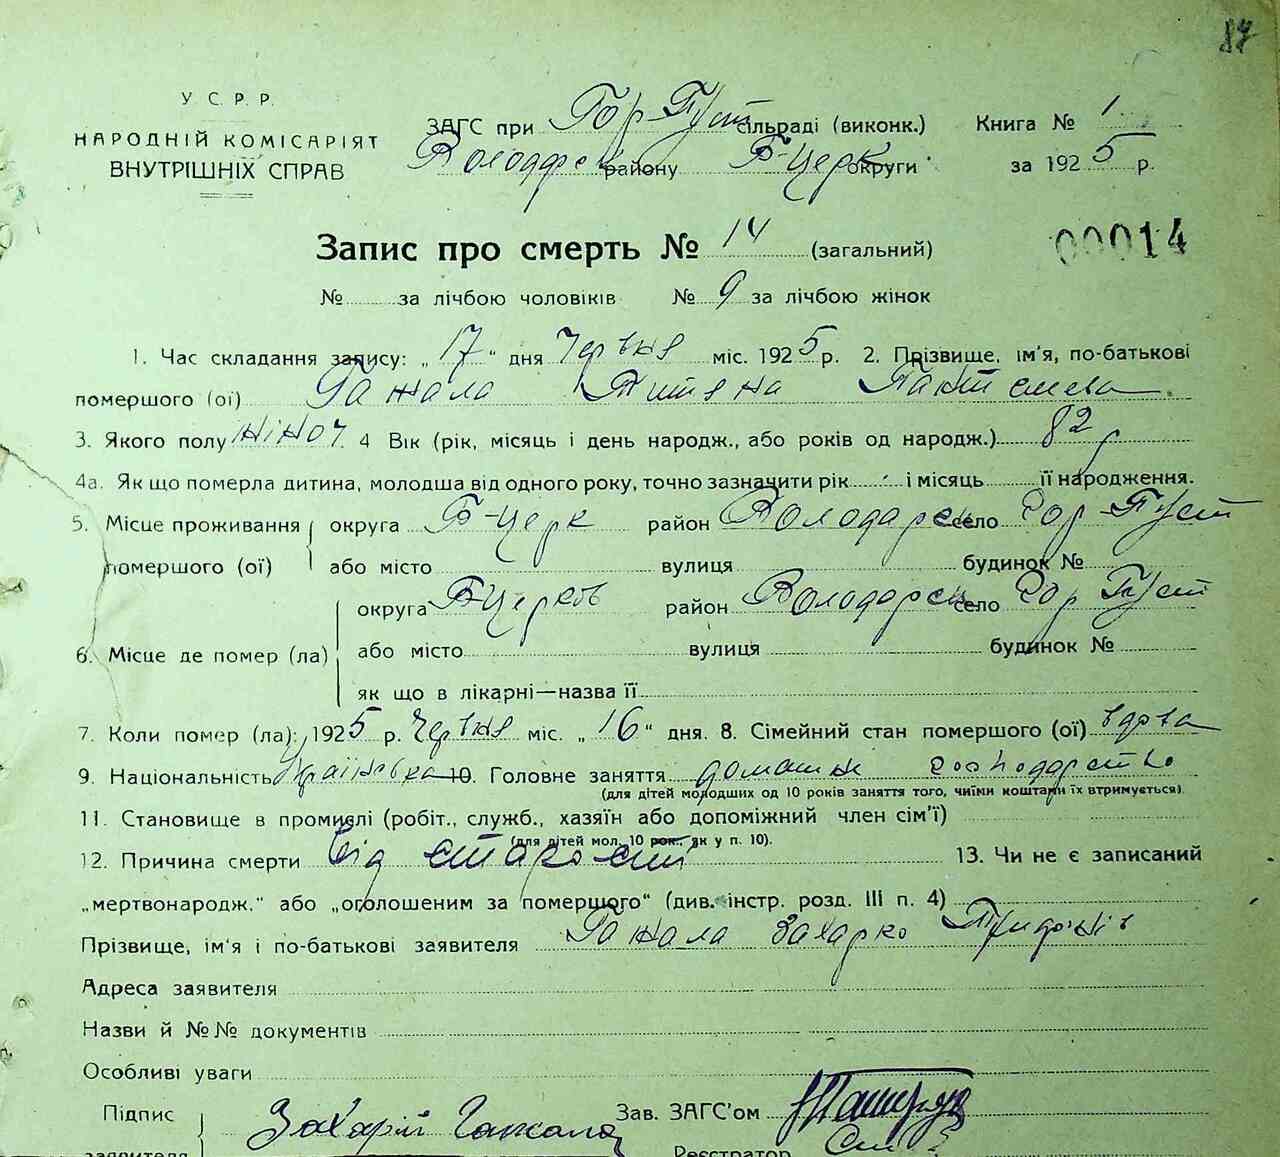 87
У С. Р. Р.
НАРОДНІЙ КОМІСАРІЯТ
ВНУТРІШНІХ СПРАВ
ЗАГС при Гор-Пуст сільраді (виконк.) Книга № 1
району Б-Церк округи за 1925 р.
Запис про смерть № 14 (загальний) 00014
№ за лічбою чоловіків № 9 за лічбою жінок
1. Час складання запису: „17“ дня Червня міс. 1925 р. 2. Прізвище, ім'я, по-батькові
помершого (ої) Гажала
3. Якого полу жіноч. 4 Вік (рік, місяць і день народж., або років од народж.) 82 р
4а. Як що померла дитина, молодша від одного року, точно зазначити рік і місяць її народження.
5. Місце проживання округа Б-Церк район Володарськ село Гор-Пуст
помершого (ої) або місто вулиця будинок №
округа Б Церков район Володарськ село Гор Пуст
6. Місце де помер (ла) або місто вулиця будинок №
як що в лікарні—назва її
7. Коли помер (ла): 1925 р. Червня міс. „16“ дня. 8. Сімейний стан помершого (ої) вдова
9. Національність Українська 10. Головне заняття домашн господарство
(для дітей молодших од 10 років заняття того, чиїми коштами їх втримується).
11. Становище в промислі (робіт., служб., хазяїн або допоміжний член сім'ї)
(для дітей мол. 10 рок., як у п. 10).
12. Причина смерти від старости 13. Чи не є записаний
„мертвонародж.“ або „оголошеним за помершого“ (див. інстр. розд. III п. 4)
Прізвище, ім'я і по-батькові заявителя Гажала Захарко
Адреса заявителя
Назви й №№ документів
Особливі уваги
Підпис Захарій Гажала Зав. ЗАГС'ом
заявителя Реєстратор